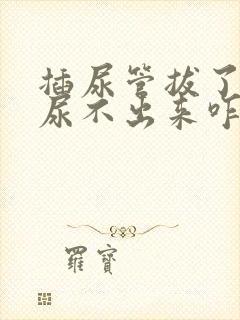 插尿管拔了
尿不出来咋
羅寶